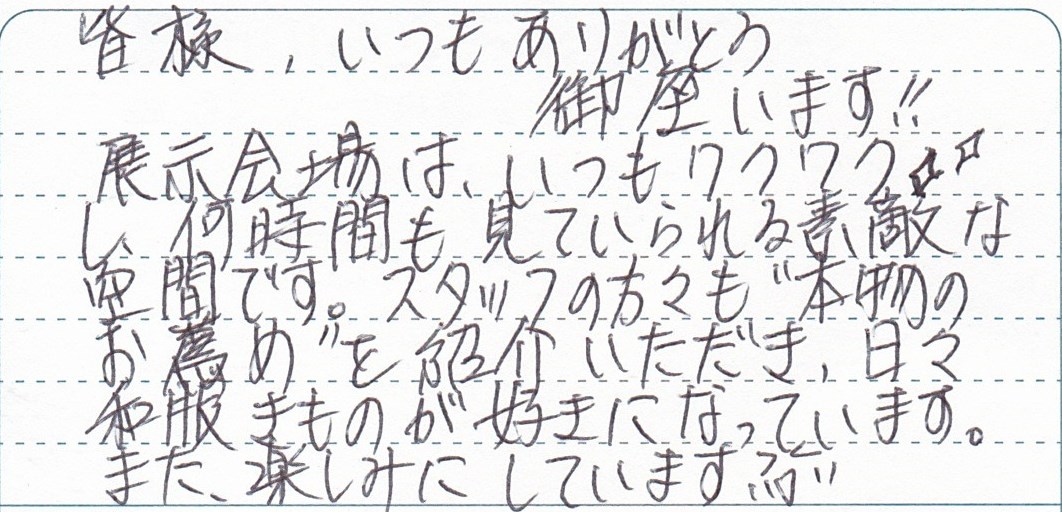 皆様、いつもありがとう
御座います!!
展示会場は、いつもワクワク
し、何時間も見ていられる素敵な
空間です。スタッフの方々も〝本物の
お薦め〟を紹介いただき、日々
和服きものが好きになっています。
また、楽しみにしています